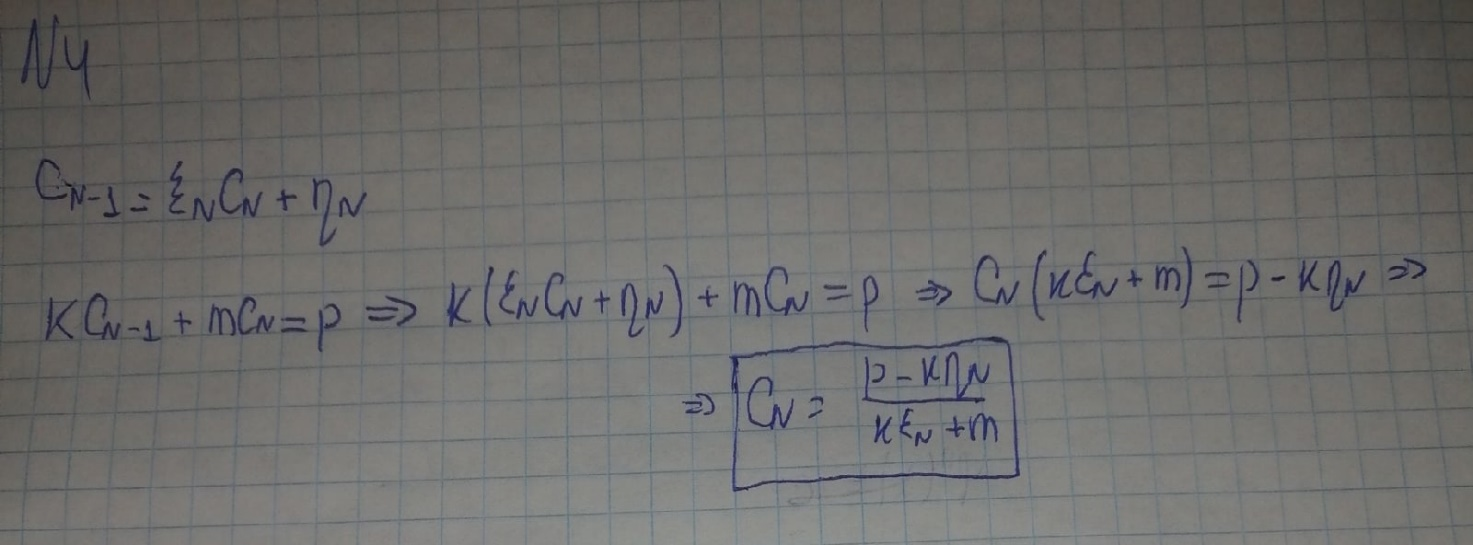 N4
C_{N-1} = ξ_N C_N + η_N
K C_{N-1} + m C_N = p ⇒ K(ξ_N C_N + η_N) + m C_N = p ⇒ C_N (K ξ_N + m) = p - K η_N ⇒
⇒ C_N = \frac{p - K η_N}{K ξ_N + m}